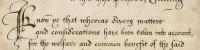 Know ye that whereas divers matters
and considerations have been taken into account,
for the welfare and common benefit of the said